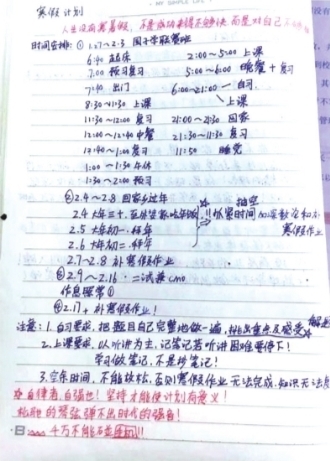 MY SIMPLE LIFE
寒假计划
人生没有寒暑假，不是成功来得不够快，而是对自己
时间安排：① 1.27~2.3 国子学联赛班
6:40 起床 2:00~5:00 上课
7:00 预习复习 5:00~6:00 晚餐+复习
7:40 出门 6:00~21:00 自习
8:30~11:30 上课 上课
11:30~12:00 复习 21:00~21:30 回家
12:00~12:40 中餐 21:30~11:30 复习
12:40~1:00 复习 11:50 睡觉
1:00~1:30 午休
1:30~2:00 预习
② 2.4~2.8 回家乡过年
2.4 大年三十 抽空
2.5 大年初一 拜年 时间 寒假作业
2.6 大年初二 拜年
2.7~2.8 补寒假作业
③ 2.9~2.16 二试兼CMO
作息照常①
④ 2.17 补寒假作业！
注意：1. 自习要求，把题目自己完整地做一遍，
2. 上课要求，以听讲为主，记笔记若听讲困难要停下！
学习做笔记，不是抄笔记！
3. 空余时间，不能放松，否则寒假作业无法完成，知识无法
自律者，自强也！坚持才能使计划有意义！
松弛的琴弦弹不出时代的强音！
日 千万不能碰手机!!!